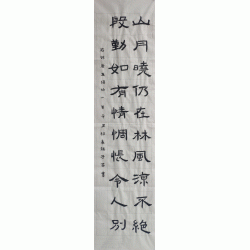 山月曉仍在林風涼不絕
殷勤如有情惆悵令人別